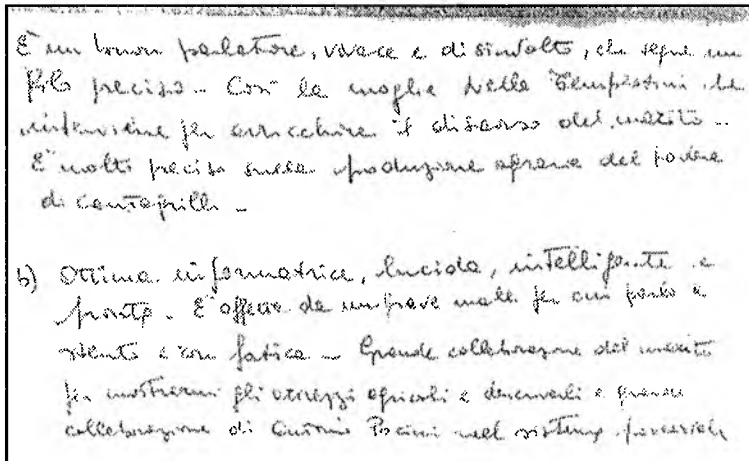 È un buon parlatore, vivace e disinvolto, che segue un
filo preciso - Così la moglie Nella Tempestini che
interviene per arricchire il discorso del marito -
È molto preciso sulla produzione agraria del podere
di Cantagrilli -
b) Ottima informatrice, lucida, intelligente e
pronta - È affetta da un grave male per cui parla a
stento e con fatica - Grande collaborazione del marito
per mostrarmi gli attrezzi agricoli e descriverli e grande
collaborazione di Antonio Pacini nel sistema